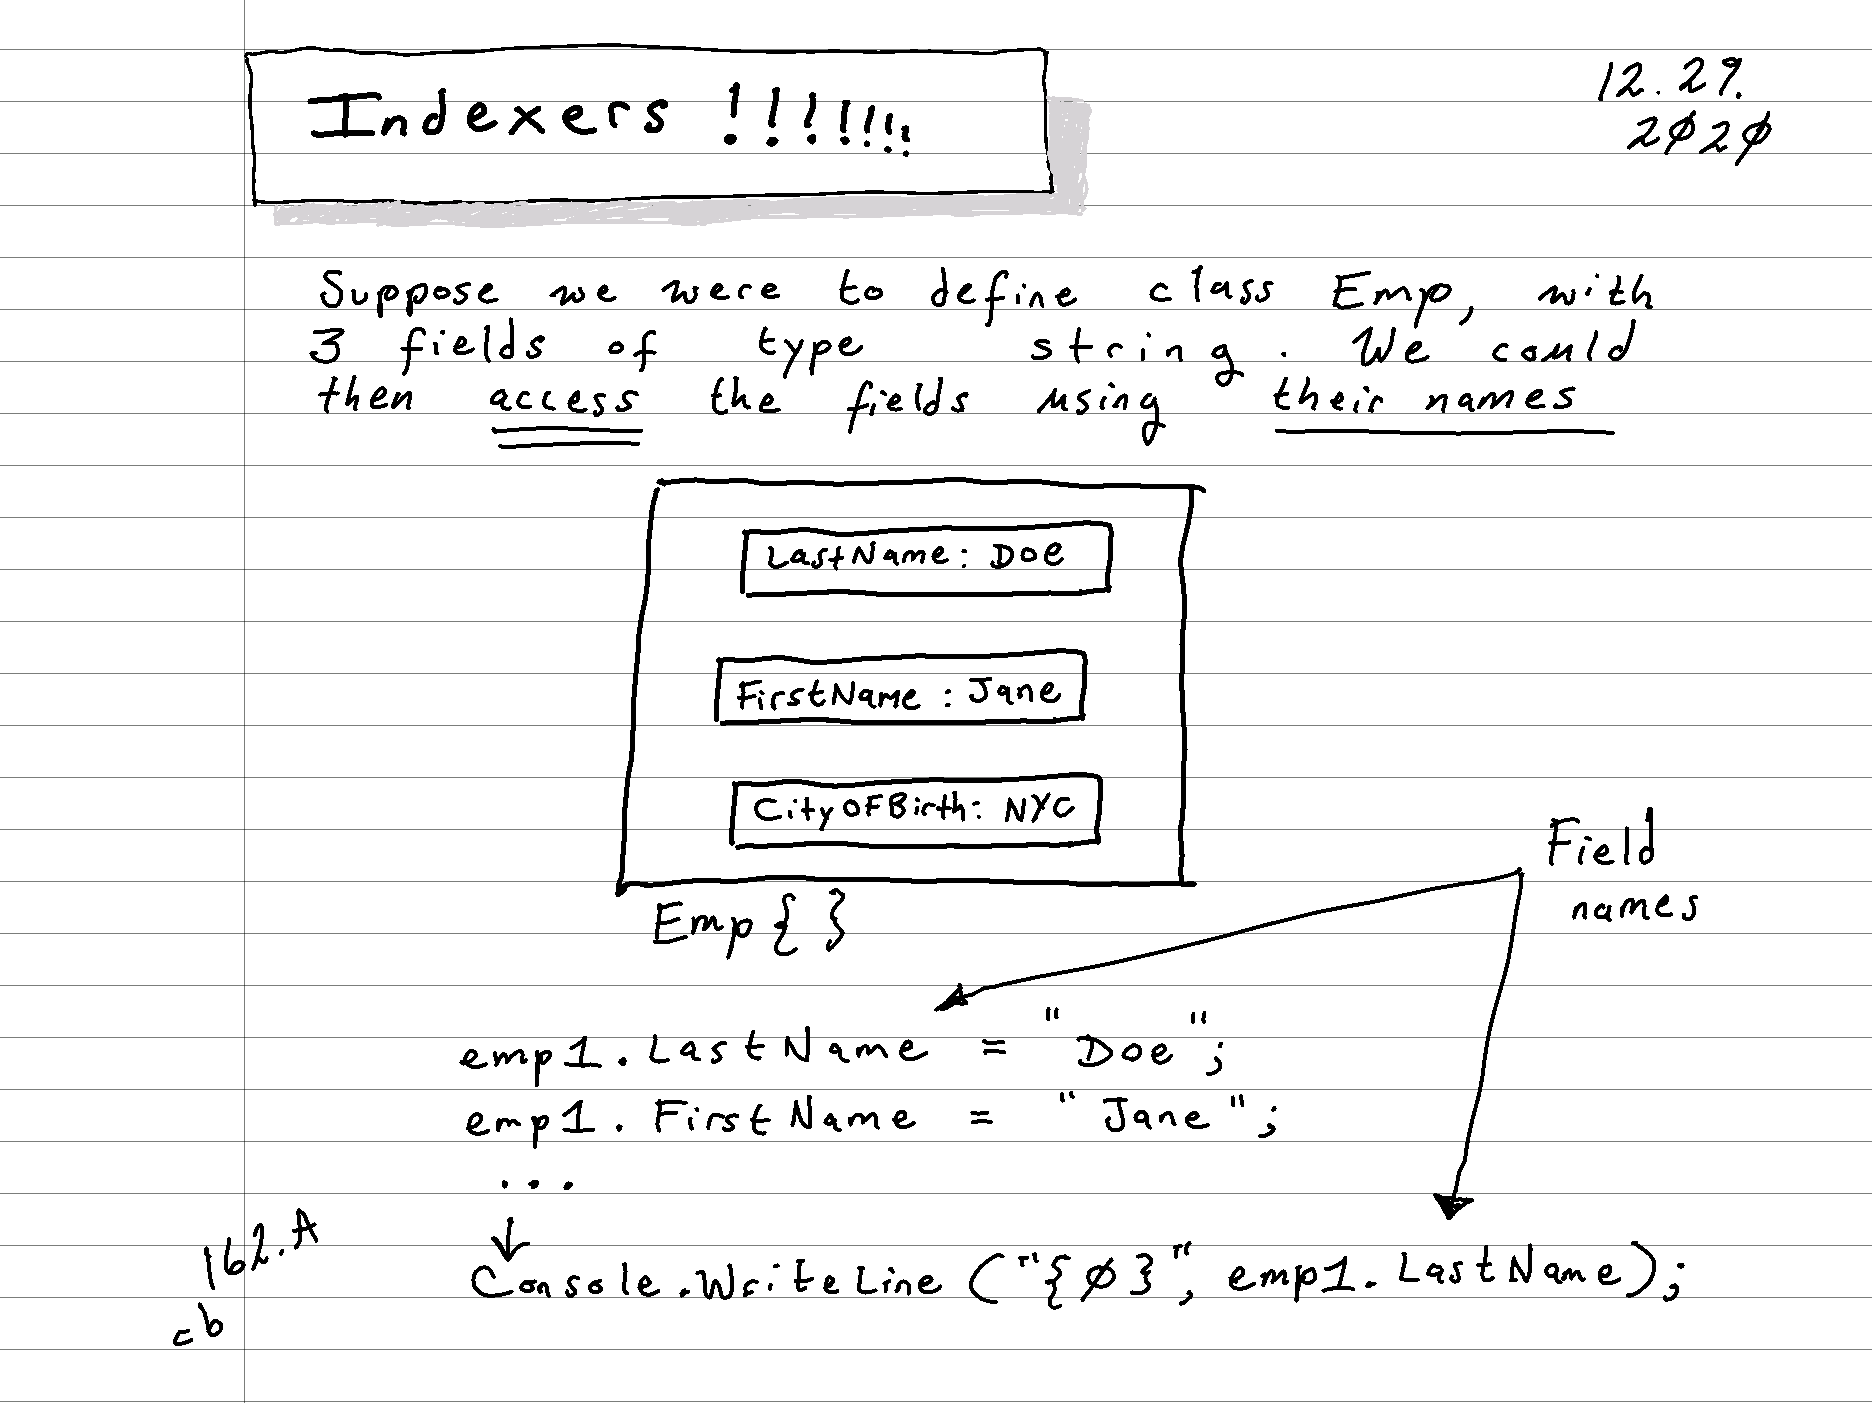 Indexers !!!!!!!
12.29.
2020
Suppose we were to define class Emp, with
3 fields of type string. We could
then access the fields using their names
LastName: Doe
FirstName: Jane
CityOFBirth: NYC
Emp{ }
Field
names
emp1.LastName = "Doe";
emp1.FirstName = "Jane";
...
Console.WriteLine("{0}", emp1.LastName);
162.A
cb